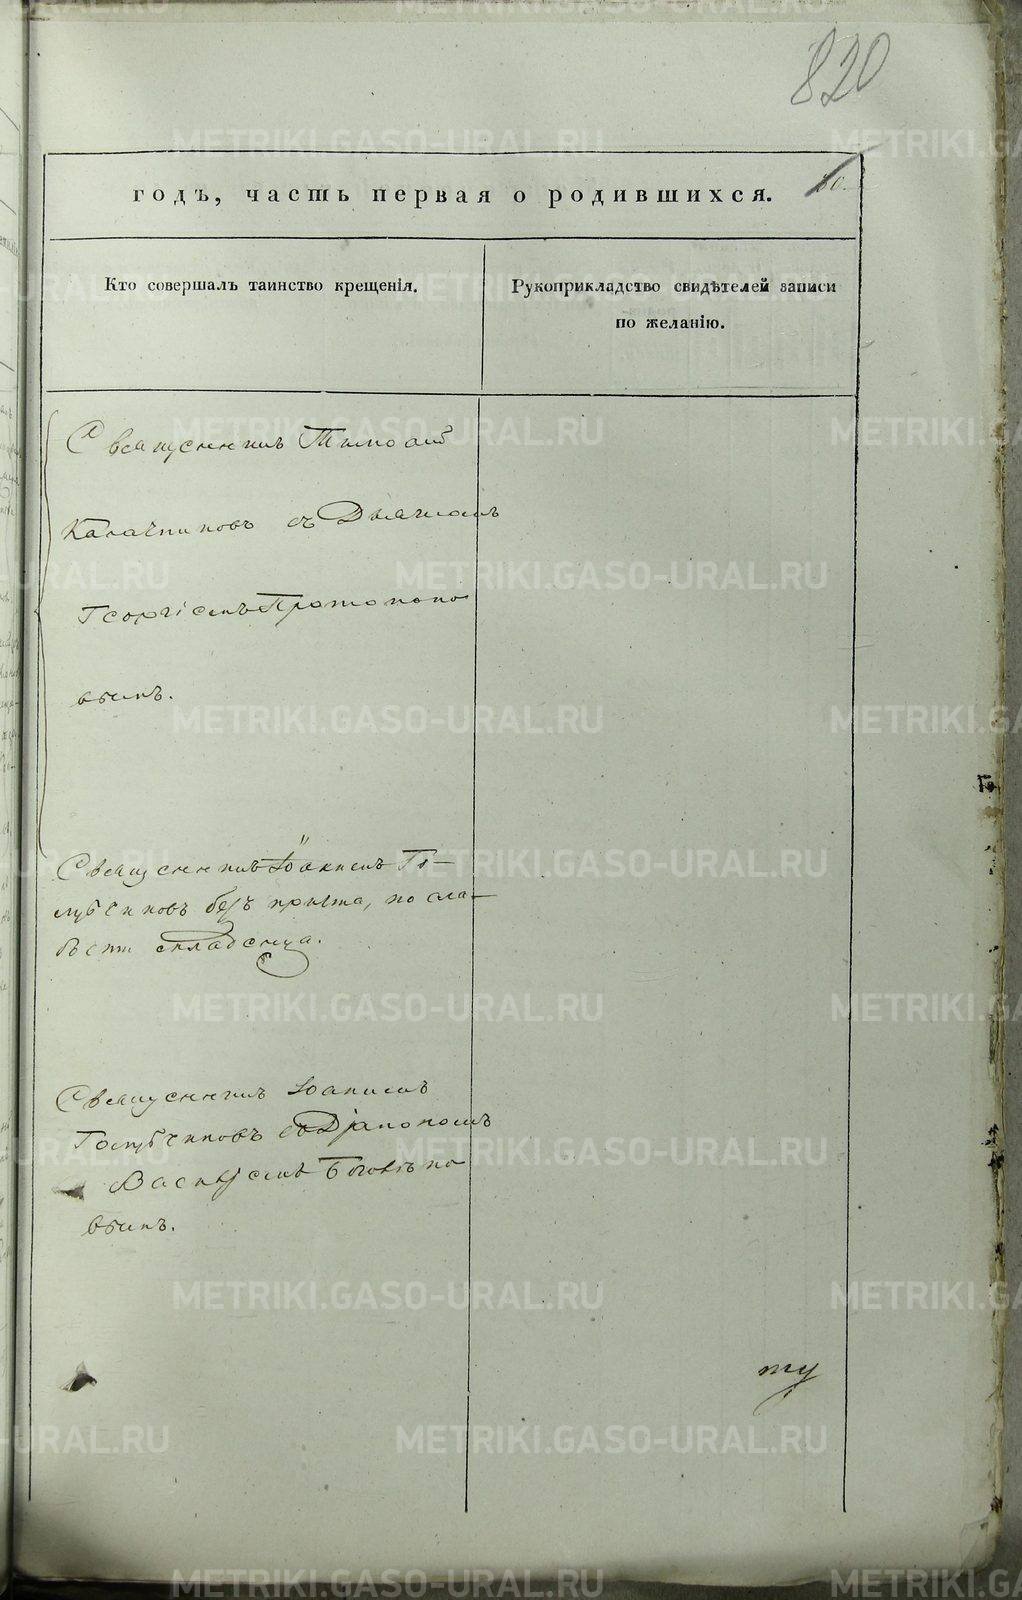 820
годъ, часть первая о родившихся.
Кто совершалъ таинство крещенія.
Рукоприкладство свидѣтелей записи
по желанію.
Священникъ Тимофей
Калачниковъ съ Дьячкомъ
Георгіемъ Протопопо
вымъ.
Священникъ Іоакимъ Го-
лубчиковъ безъ причта, по сла-
бости младенца.
Священникъ Іоакимъ
Голубчиковъ съ Діакономъ
Василіемъ Боголѣпо
вымъ.
ту
METRIKI.GASO-URAL.RU